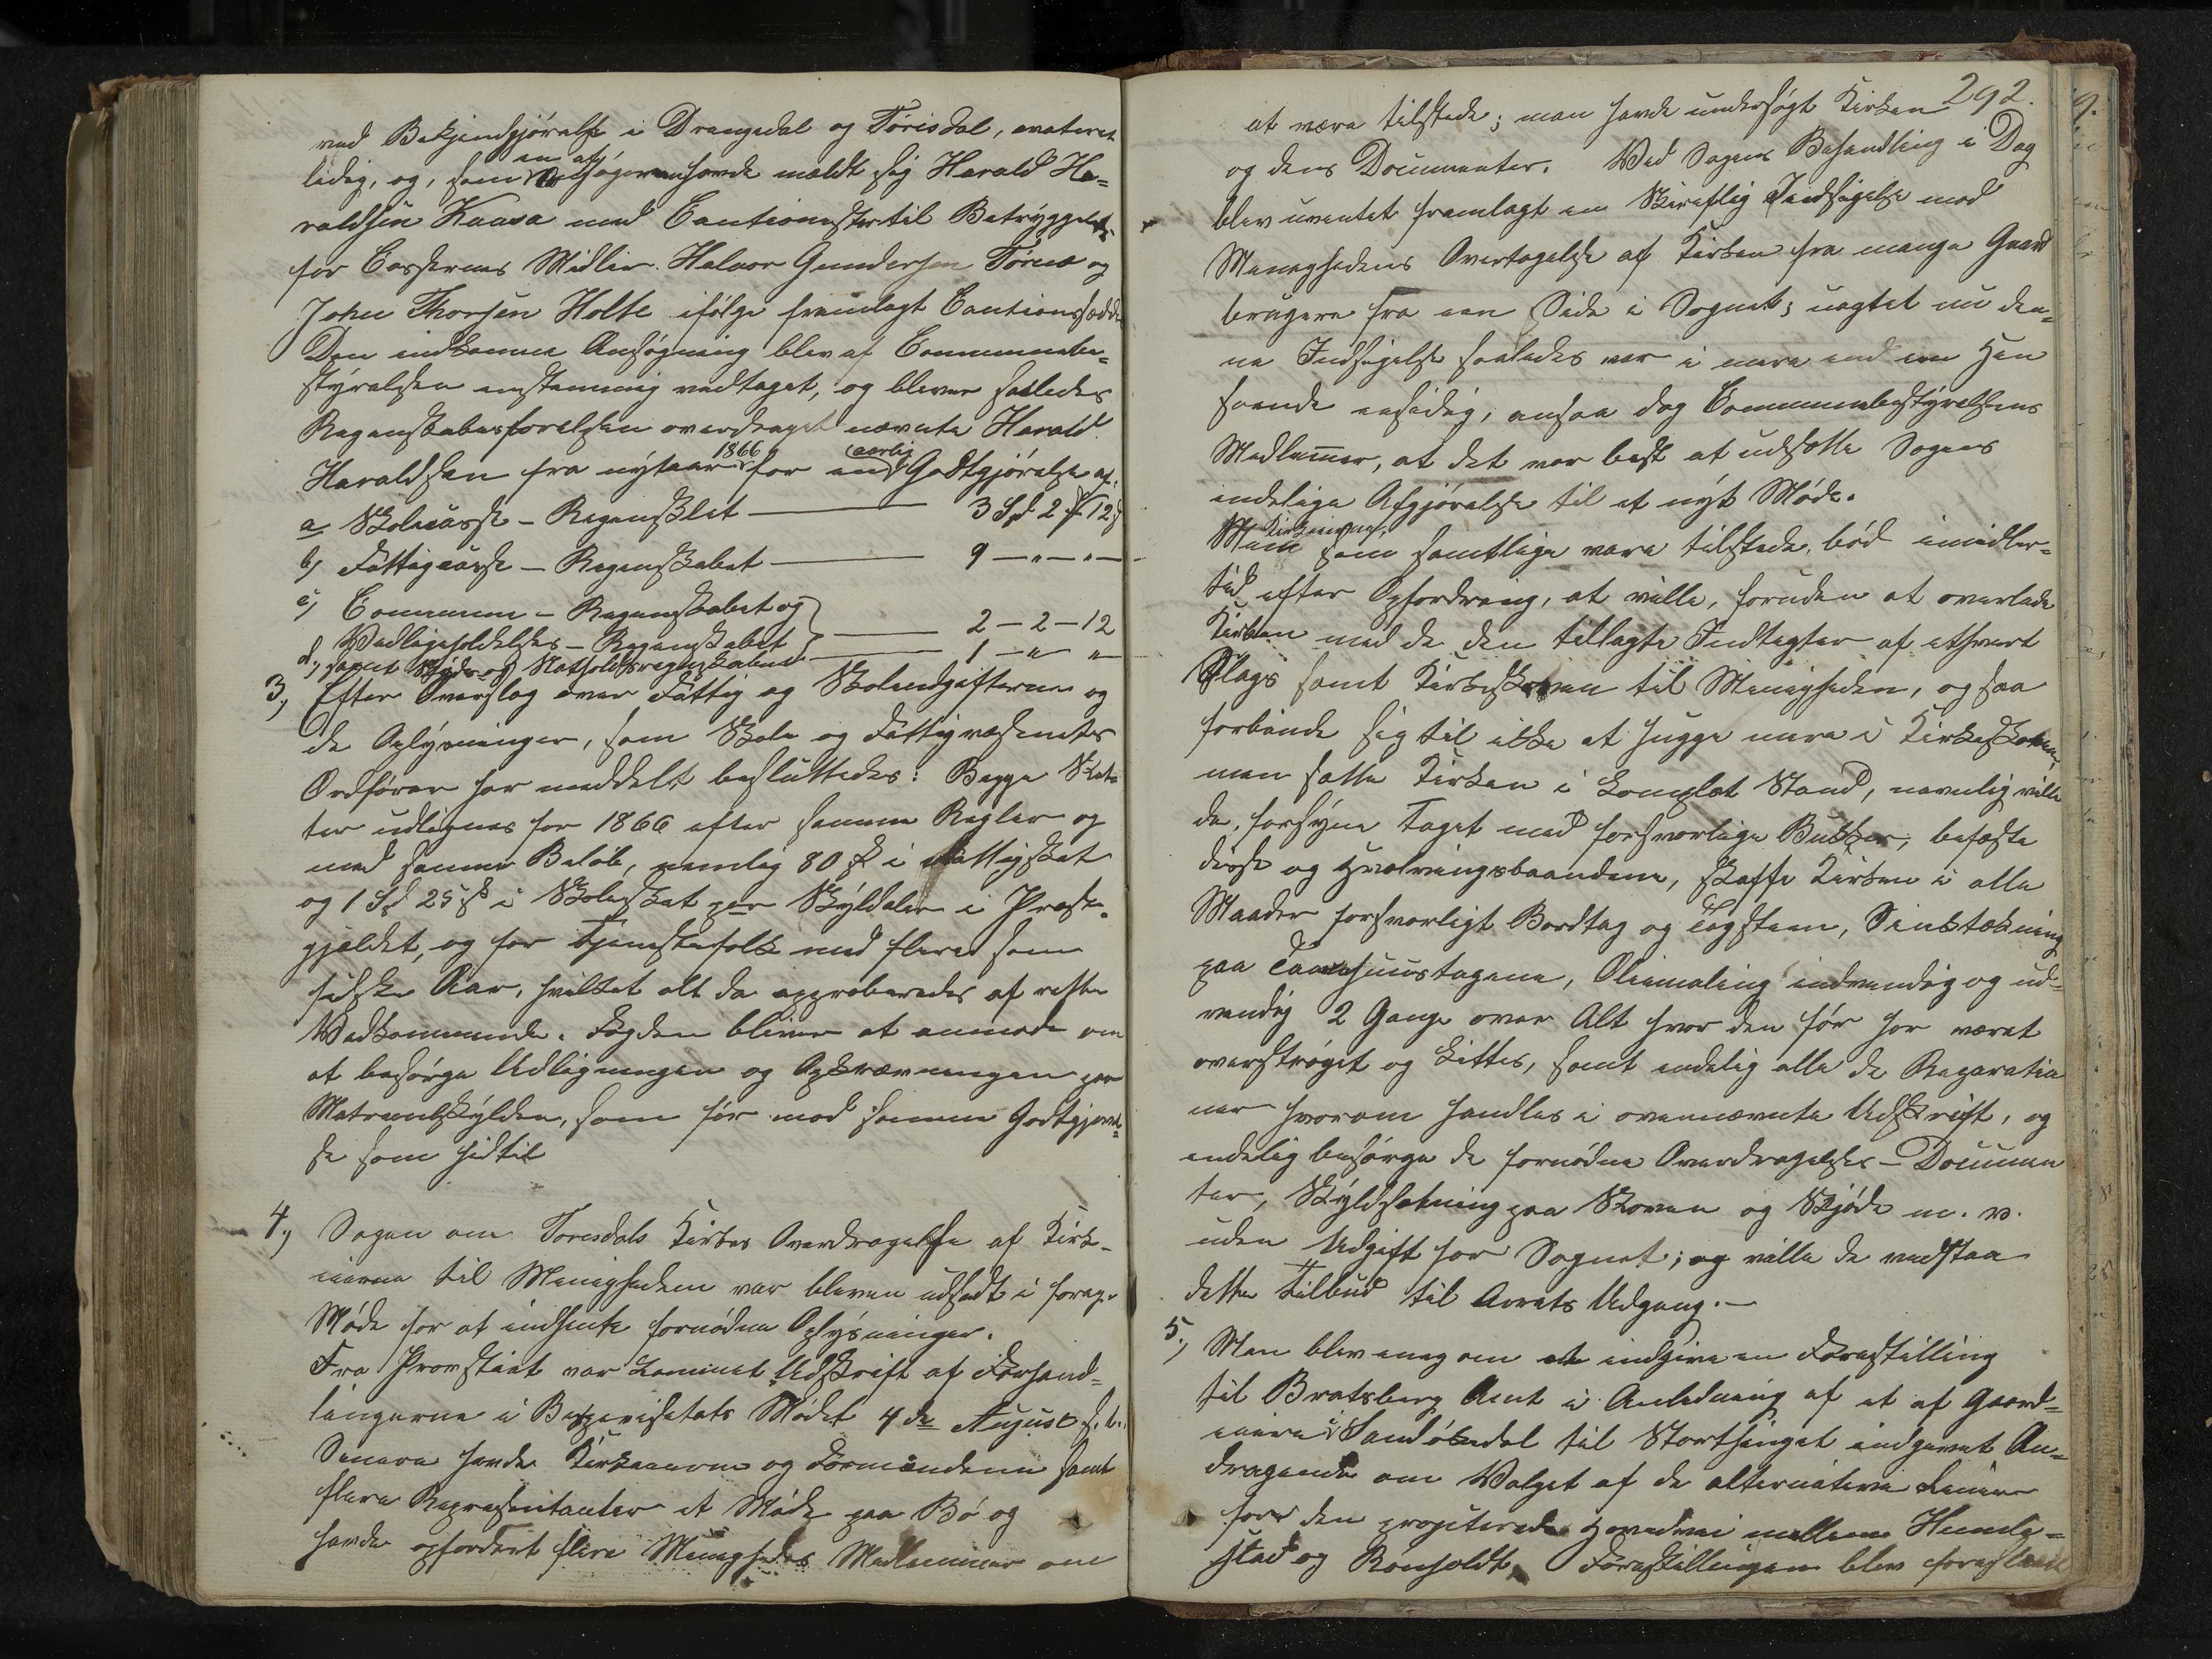 ved Bekjendtgjørelse i Drangedal og Tørisdal, averteret
ledig, og, som en Ansøger havde meldt sig Harald Ha=
raldsen Kaasa med Cautionister til Betryggelse
for Cassernes Midler. Halvor Gundersen Tørnes og
John Thorsen Holte ifølge fremlagt Cautionsseddel
Den indkomne Ansøgning blev af Communebe=
styrelsen enstemmig vedtaget, og bliver saaledes
Regenskabsførelsen overdraget nævnte Harald
Haraldsen fra nytaar 1866 for en aarlig Godtgjørelse af:
a Skolecasse - Regenskabet — 3 Spd 2 # 12 s
b) Fattigcasse - Regenskabet — 9 — " — " —
c) Commune - Regenskabet og
Vedligeholdelses - Regenskabet — 2 — 2 — 12
d) samt Skyds og Natholdsregnskabet — 1 — " "
3, Efter Overslag over Fattig og Skoleudgifterne og
de Oplysninger, som Skole og Fattigvæsenets
Ordfører har meddelt besluttedes: Begge Skat=
ter udlignes for 1866 efter samme Regler og
med samme Beløb, nemlig 80 sk i Fattigskat
og 1 Spd 25 sk i Skoleskat per Skylddaler i Præste=
gjældet, og for Tjenestefolk med flere som
sidste Aar, hvilket alt da approberedes af rette
Vedkommende. Fogden bliver at anmode om
at besørge Udligningen og Opkrævningen per
Matrculskylden, som før mod samme Godtgjørel=
se som hidtil
4, Sagen om Torisdals Kirkes Overdragelse af Kirk=
eierne til Menigheden var bleven udsadt i forrige
Møde for at indhente fornødne Oplysninger.
Fra Provstiet var kommet Udskrift af Forhand=
lingerne i Bispevisitats Mødet 4de August d.A.
Senere havde Kirkeeierne og Formændene samt
flere Repræsentanter et Møde paa Bø og
havde opfordret flere Menigheds Medlemmer om
292.
at være tilstede; man havde undersøgt Kirken
og dens Documenter. Ved Sagens Behandling i Dag
blev uventet fremlagt en Skriftlig Indsigelse mod
Menighedens Overtagelse af Kirken fra mange Gaard
brugere fra een Side i Sognet; uagtet nu den=
ne Indsigelse saaledes var i mere end en Hen
seende ensidig, ansaa dog Communebestyrelsens
Medlemmer, at det var best at udsætte Sagens
endelige Afgjørelse til et nyt Møde.
Kirkeeierne, som samtlige vare tilstede, bød imidler=
tid efter Opfordring, at ville, foruden at overlade
Kirken med de den tillagte Indtægter af ethvert
Slags samt Kirkeskoven til Menigheden, og saa
forbinde sig til ikke at hugge mere i Kirkeskoven,
men satte Kirken i complet Stand, navnlig ville
de, forsyne Taget med forsvarlige Bukker, befæste
disse og Hvælvingsbaandene, skaffe Kirken i alle
Maader forsvarligt Bordtag og Tagsteen, Sinktækning
paa Taarnhuustagene, Oliemaling indvendig og ud=
vendig 2 Gange over Alt hvor den før har været
overstrøget og kittes, samt endelig alle de Reparatio
ner hvorom handles i ovennævnte Udskrift, og
endelig besørge de fornødne Overdragelses - Documen
ter, Skyldsætning paa Skoven og Skjøde m. v.
uden Udgift for Sognet; og ville de vedstaa
dette Tilbud til Aarets Udgang. —
5, Man blev enig om at indgive en Forestilling
til Bratsberg Amt i Anledning af et af Gaard=
eiere i Sandøkedal til Storthinget indgivet An=
dragende om Valget af de alternative Linier
for den projecterede Hovedvei mellem Humle=
stad og Rønholdt. Forestillingen blev foreslaaet